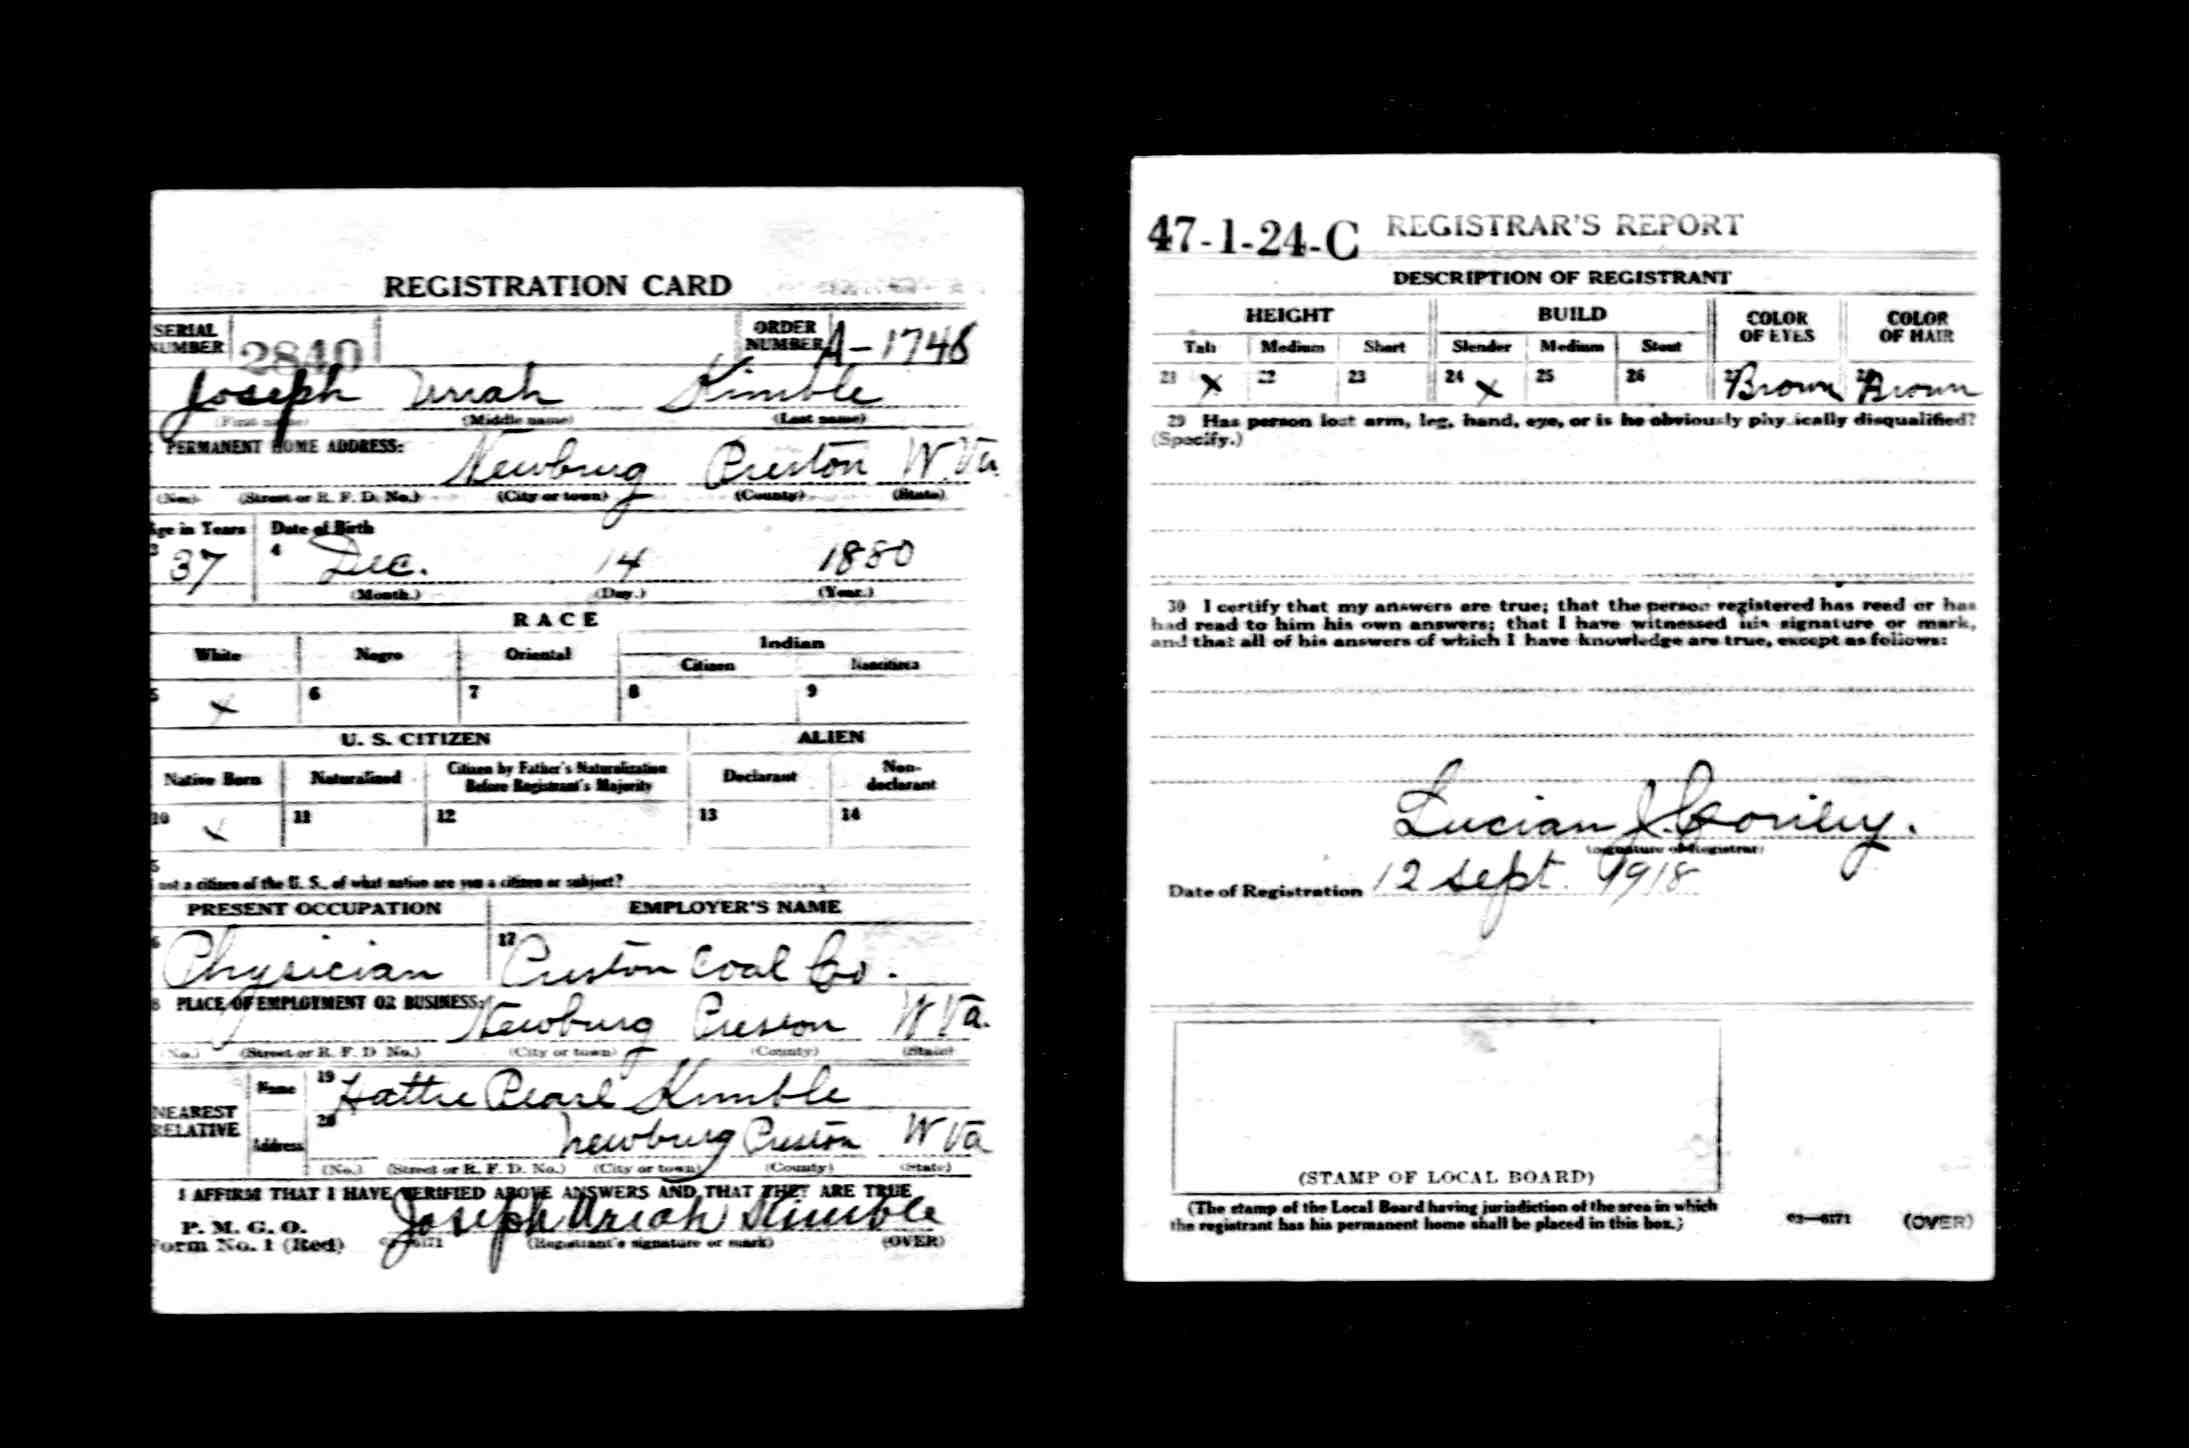 REGISTRATION CARD
SERIAL NUMBER 2840 ORDER NUMBER A-1748
Joseph Uriah Kimble
(First name) (Middle name) (Last name)
PERMANENT HOME ADDRESS:
Newburg Preston W. Va.
(No.) (Street or R. F. D. No.) (City or town) (County) (State)
Age in Years Date of Birth
3 37 4 Dec. 14 1880
(Month.) (Day.) (Year.)
RACE
White Negro Oriental Indian
Citizen Noncitizen
5 x 6 7 8 9
U. S. CITIZEN ALIEN
Native Born Naturalized Citizen by Father's Naturalization Before Registrant's Majority Declarant Non-declarant
10 x 11 12 13 14
not a citizen of the U. S., of what nation are you a citizen or subject?
PRESENT OCCUPATION EMPLOYER'S NAME
Physician 17 Preston Coal Co.
PLACE OF EMPLOYMENT OR BUSINESS:
Newburg Preston W Va.
(No.) (Street or R. F. D. No.) (City or town) (County) (State)
NEAREST RELATIVE
Name 19 Hattie Pearl Kimble
Address 20 Newburg Preston W Va
(No.) (Street or R. F. D. No.) (City or town) (County) (State)
I AFFIRM THAT I HAVE VERIFIED ABOVE ANSWERS AND THAT THEY ARE TRUE
P. M. G. O.
Form No. 1 (Red) Joseph Uriah Kimble
(Registrant's signature or mark) (OVER)
47-1-24-C REGISTRAR'S REPORT
DESCRIPTION OF REGISTRANT
HEIGHT BUILD COLOR OF EYES COLOR OF HAIR
Tall Medium Short Slender Medium Stout
21 x 22 23 24 x 25 26 Brown Brown
29 Has person lost arm, leg, hand, eye, or is he obviously physically disqualified?
(Specify.)
30 I certify that my answers are true; that the person registered has read or has
had read to him his own answers; that I have witnessed his signature or mark,
and that all of his answers of which I have knowledge are true, except as follows:
Lucian J.
(Signature of Registrar)
Date of Registration 12 Sept. 1918
(STAMP OF LOCAL BOARD)
(The stamp of the Local Board having jurisdiction of the area in which
the registrant has his permanent home shall be placed in this box.)
03—6171 (OVER)